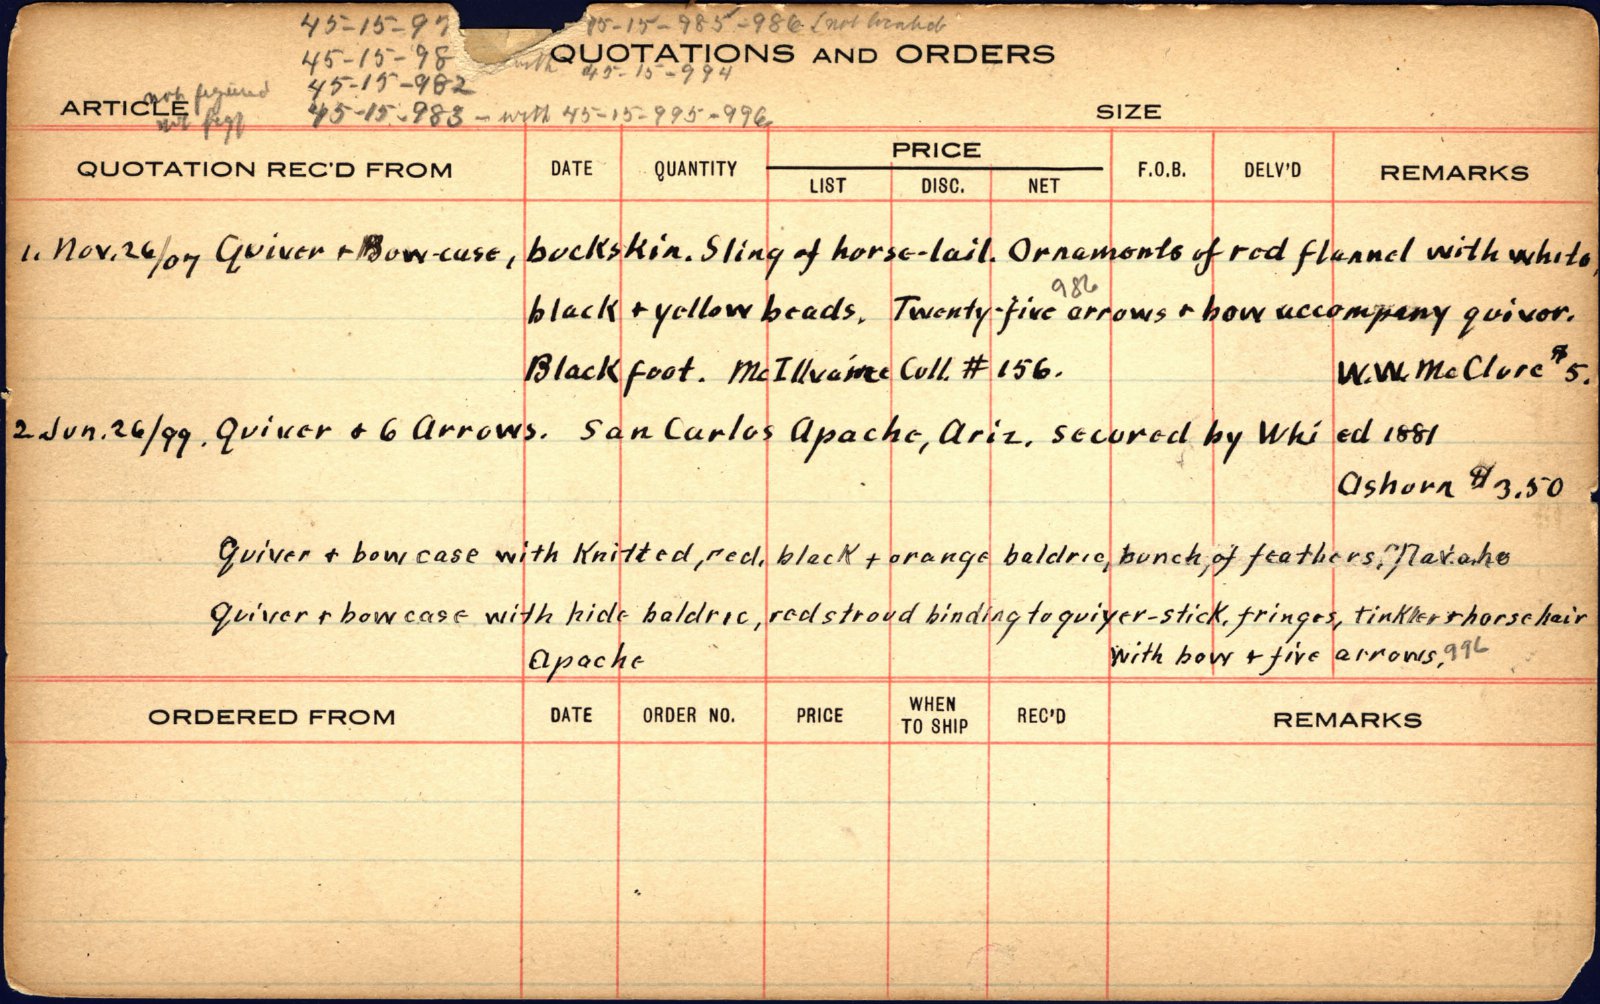 45-15-97 15-15-985-986 (not located
45-15-98 with 45-15-994
QUOTATIONS AND ORDERS
45-15-982
not figured
ARTICLE 45-15-983 - with 45-15-995-996
not figd
SIZE
QUOTATION REC'D FROM DATE QUANTITY PRICE LIST DISC. NET F.O.B. DELV'D REMARKS
1. Nov. 26/07 Quiver + Bow-case, buckskin. Sling of horse-tail. Ornaments of red flannel with white,
986
black + yellow beads. Twenty-five arrows + bow accompany quiver.
Blackfoot. McIlvaine Coll. # 156. W.W. McClure $5.
2 Jun. 26/99. Quiver + 6 Arrows. San Carlos Apache, Ariz. secured by Whi ed 1881
Ashorn $3.50
Quiver + bow case with Knitted, red, black + orange baldric, bunch of feathers, Navaho
Quiver + bow case with hide baldric, red stroud binding to quiver-stick, fringes, tinkler + horsehair
Apache with bow + five arrows, 996
ORDERED FROM DATE ORDER NO. PRICE WHEN TO SHIP REC'D REMARKS